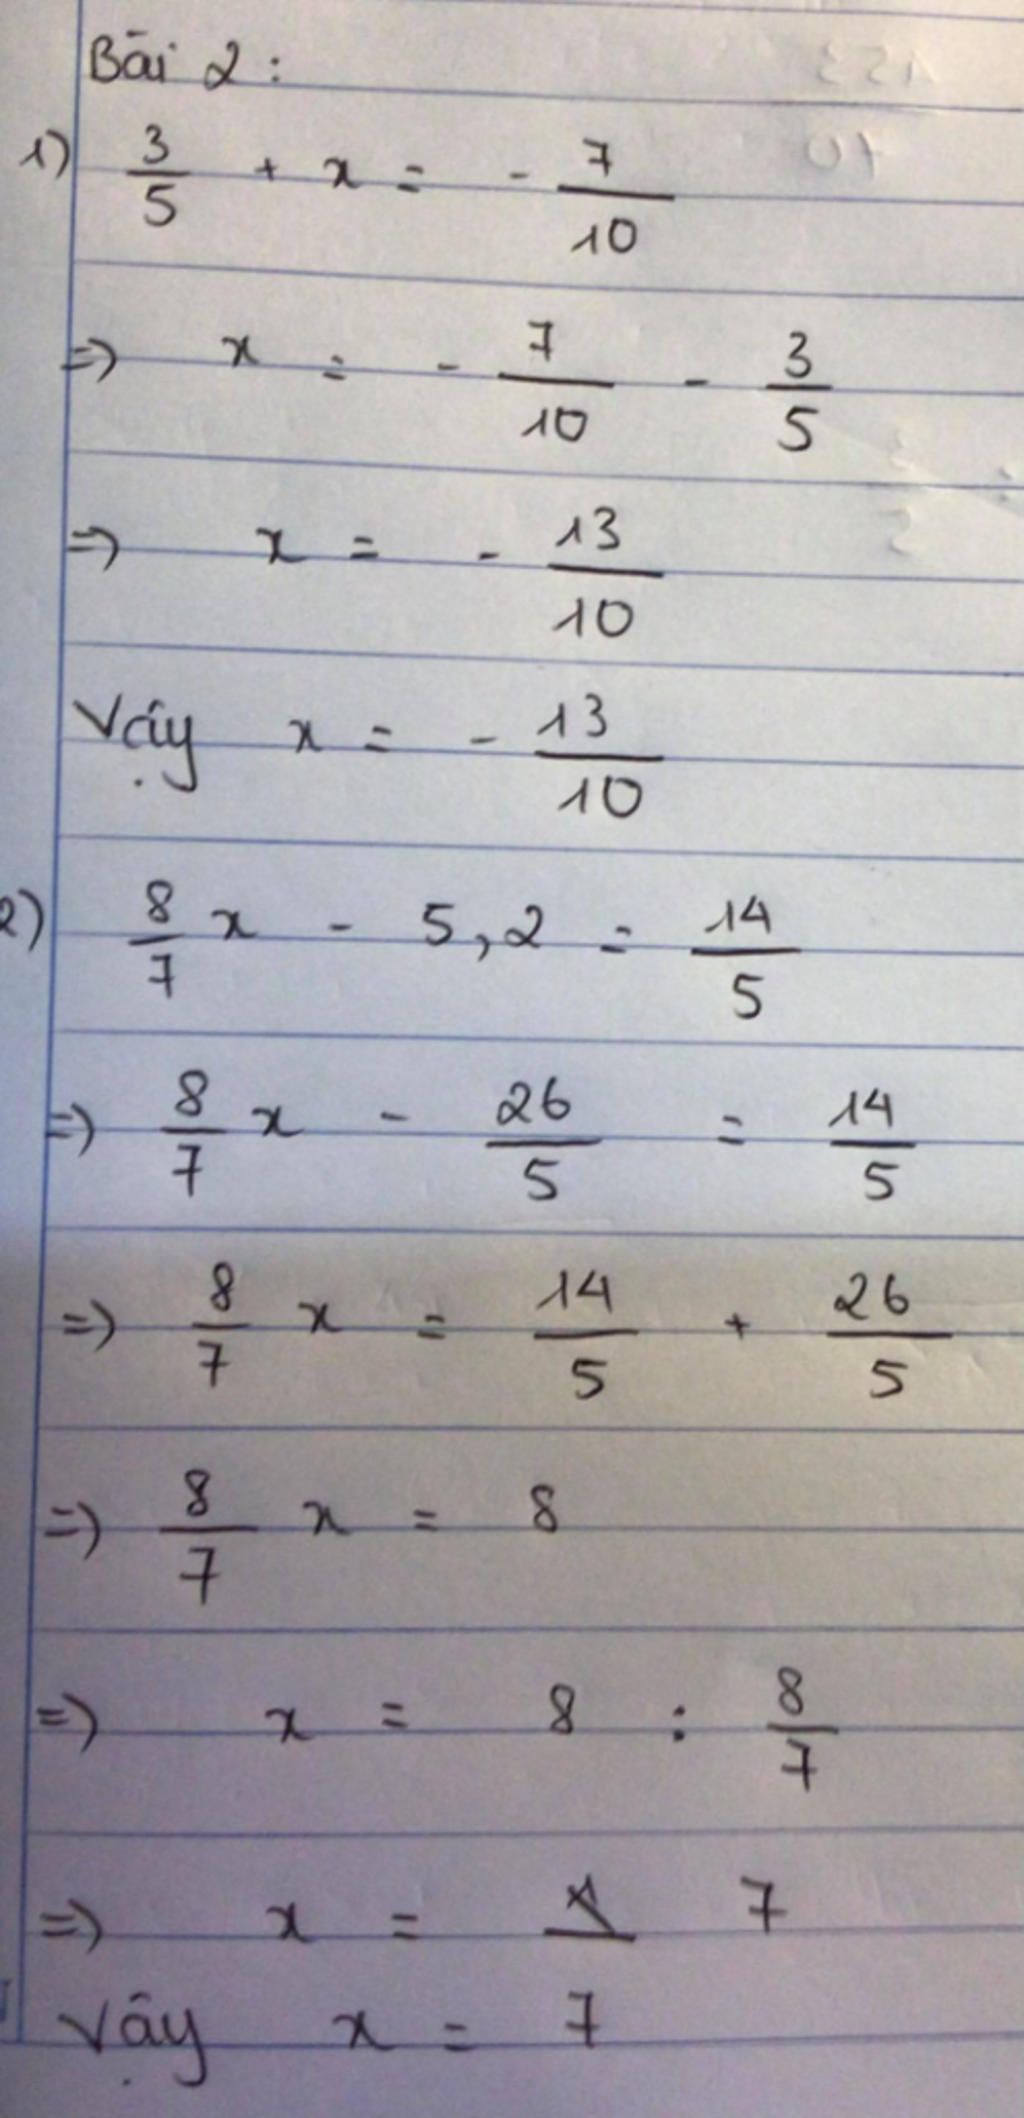 Bài 2:
1) 3/5 + x = - 7/10
=> x = - 7/10 - 3/5
=> x = - 13/10
Vậy x = - 13/10
2) 8/7 x - 5,2 = 14/5
=> 8/7 x - 26/5 = 14/5
=> 8/7 x = 14/5 + 26/5
=> 8/7 x = 8
=> x = 8 : 8/7
=> x = 7
Vậy x = 7